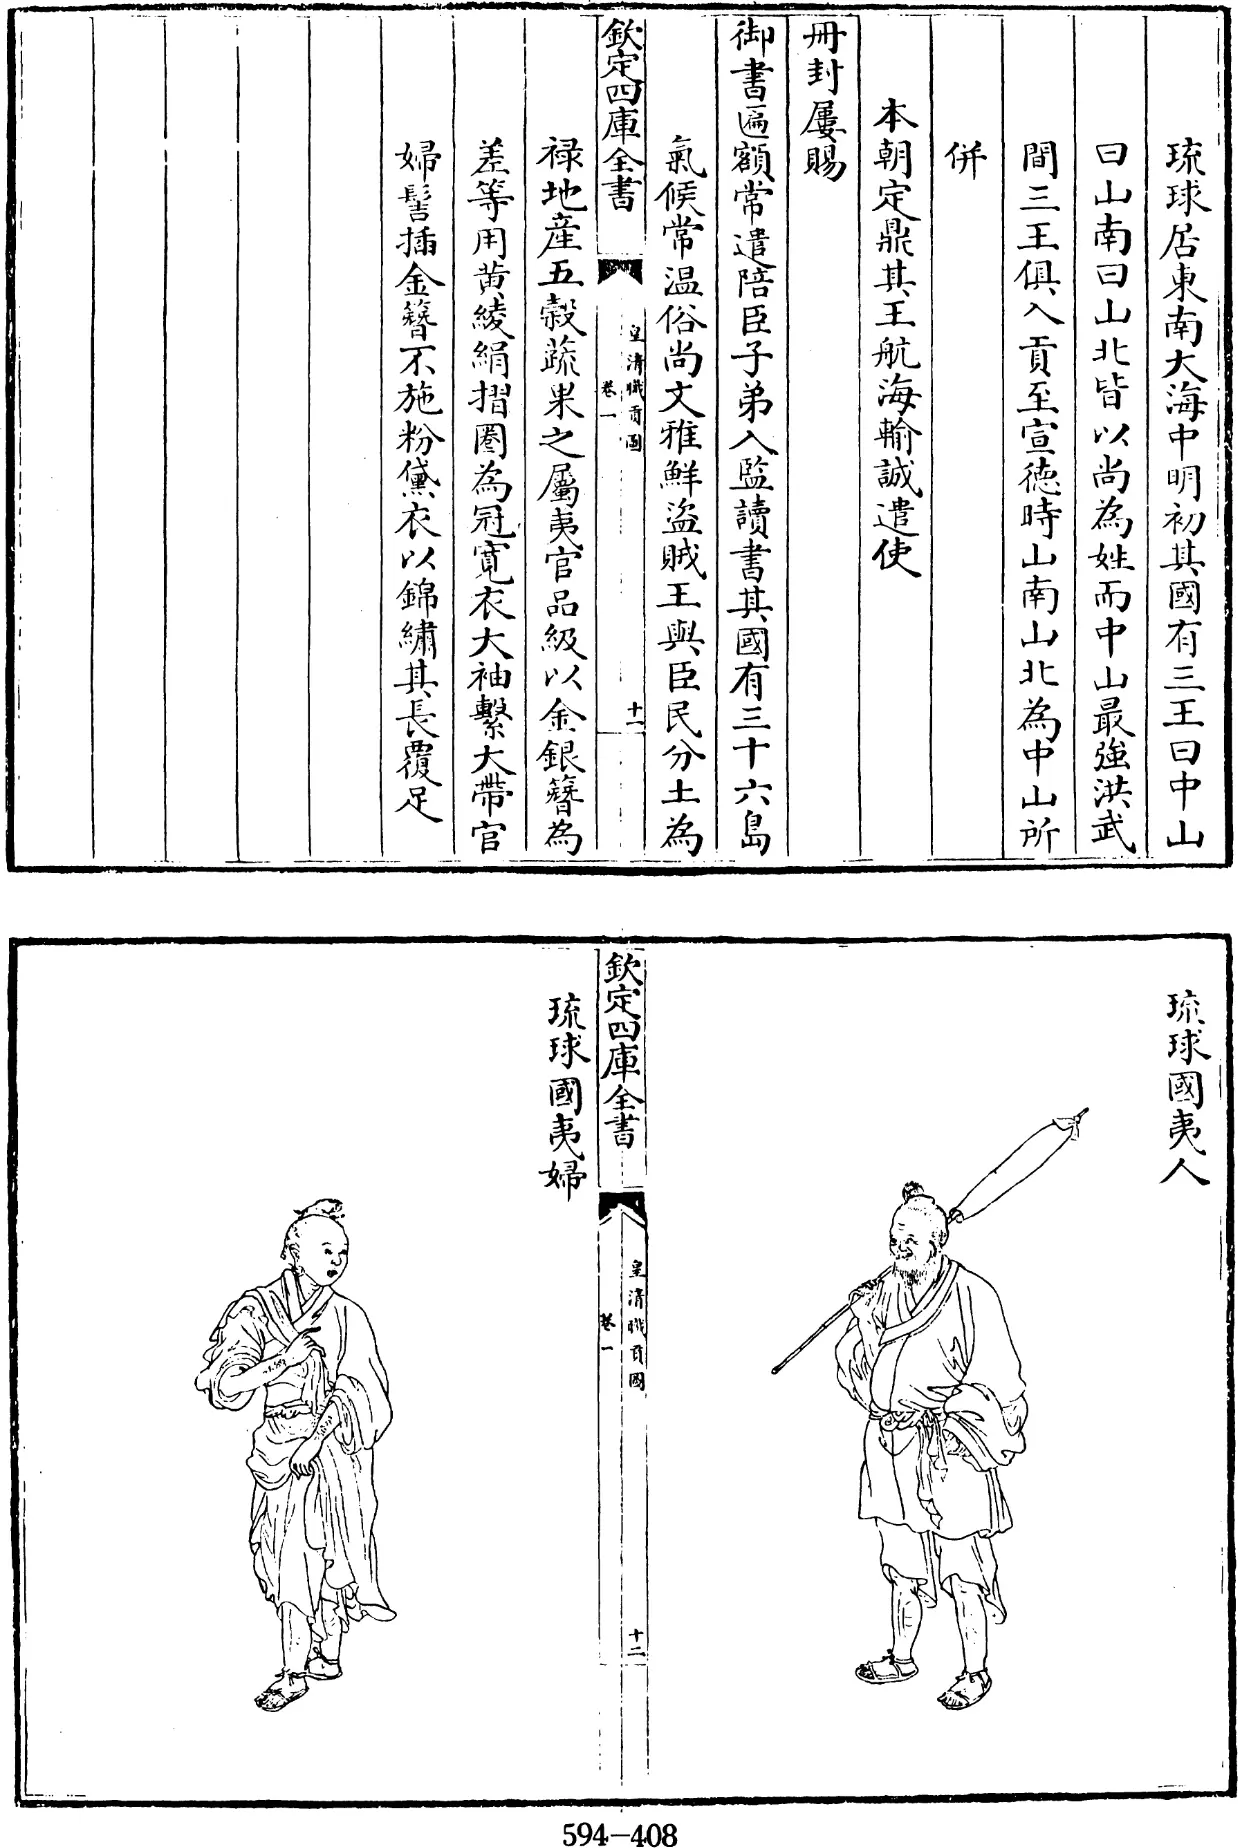 琉球居東南大海中明初其國有三王曰中山
曰山南曰山北皆以尚為姓而中山最強洪武
間三王俱入貢至宣德時山南山北為中山所
併
本朝定鼎其王航海輸誠遣使
冊封屢賜
御書匾額常遣陪臣子弟入監讀書其國有三十六島
氣候常温俗尚文雅鮮盜賊王與臣民分土為
欽定四庫全書
皇清職貢圖
卷一
十一
禄地産五穀蔬果之屬夷官品級以金銀簪為
差等用黄綾絹摺圈為冠寛衣大袖繫大帶官
婦髻插金簪不施粉黛衣以錦繡其長覆足
琉球國夷人
欽定四庫全書
皇清職貢圖
卷一
十二
琉球國夷婦
594-408